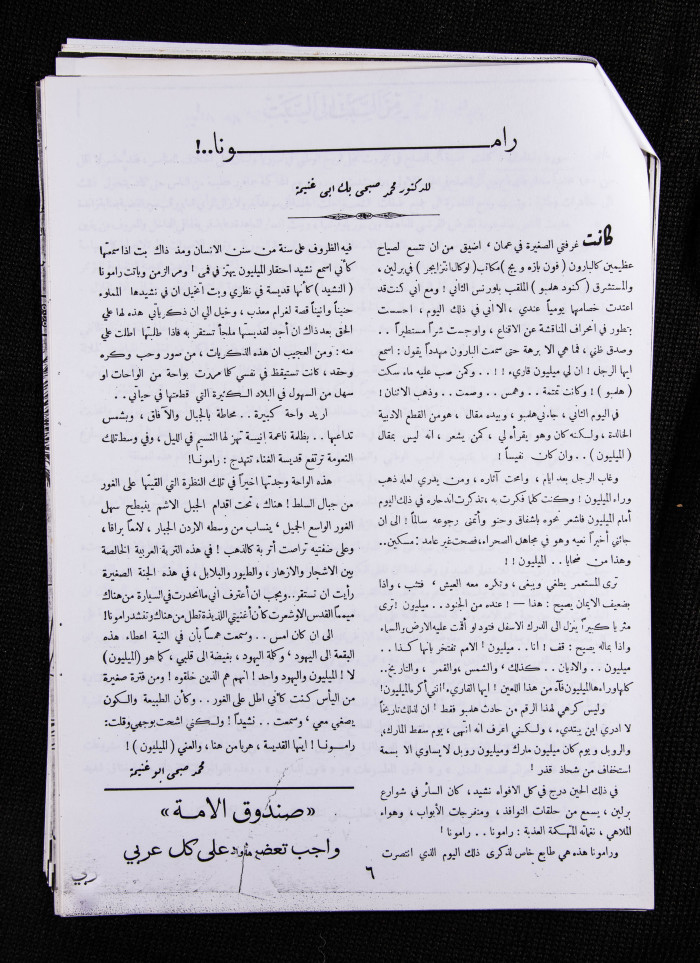 رامـــونا..!
للدكتور محمد صبحي بك ابي غنيمة
كانت غرفتي الصغيرة في عمان ، اضيق من ان تتسع لصياح
عظيمين كالبارون ( فون بازه ويج ) مكاتب ( لوكال انزايجر ) في برلين ،
والمستشرق ( كنود هلبو ) الملقب بلورنس الثاني ! ومع اني كنت قد
اعتدت خصامها يومياً عندي ، الا اني في ذلك اليوم ، احسست
بتطور في انحراف المناقشة عن الاقناع ، واوجست شراً مستطيراً . .
وصدق ظني ، فما هي الا برهة حتى سمعت البارون مهدداً يقول : اسمع
ايها الرجل ! ان لي مليون قاريء ! ! . . وكمن صب عليه ماء سكت
( هلبو ) ! وكانت تمتمة . . وهمس . . وصمت . . وذهب الاثنان !
في اليوم الثاني ، جاءني هلبو ، وبيده مقال ، هو من القطع الادبية
الخالدة ، ولكنه كان وهو يقرأه لي ، كمن يشعر ، انه ليس بمقال
( المليون ) . . وان كان نفيساً !
وغاب الرجل بعد ايام ، وامحت آثاره ، ومن يدري لعله ذهب
وراء المليون ! وكنت كلما فكرت به ، تذكرت اندحاره في ذلك اليوم
أمام المليون فاشعر نحوه باشفاق وحنو وأتمنى رجوعه سالماً ! الى ان
جائني أخيراً نعيه وهو في مجاهل الصحراء، فصحت غير عامد : مسكين..
وهذا من ضحايا . . المليون ! !
ترى المستعمر يطغي ويبغى ، وتكره معه العيش ، فتثب ، واذا
بضعيف الايمان يصيح : هذا — ! عنده من الجنود . . مليون ! ترى
مثرياً كبيراً ينزل الى الدرك الاسفل فتود لو أقمت عليه الارض والسماء
واذا بماله يصيح : قف ! انا . . مليون ! الامم تفتخر بانها كذا . .
مليون . . والاديان . . كذلك ، والشمس ، والقمر ، والتاريخ..
كلها وراءها المليون فآه من هذا اللعين ! ايها القاريء ! انني أكره المليون !
وليس كرهي لهذا الرقم من حادث هلبو فقط ! ان لذلك تاريخاً
لا ادري اين يبتديء ، ولكنني اعرف انه انهى ، يوم سقط المارك،
والروبل ، ويوم كان مليون مارك ومليون روبل لا يساوي الا بسمة
استخفاف من شحاذ قذر !
في ذلك الحين درج في كل الافواء نشيد ، كان السائر في شوارع
برلين ، يسمع من حلقات النوافذ ، ومنفرجات الأبواب ، وهواء
الملاهي ، نغماته المتهتكة العذبة : رامونا . . رامونا !
ورامونا هذه هي طابع خاص لذكرى ذلك اليوم الذي انتصرت
فيه الظروف على سنة من سنن الانسان ومذ ذاك بت اذا سمعتها
كأني اسمع نشيد احتقار المليون يهتز في فمي ! ومر الزمن وباتت رامونا
( النشيد ) كأنها قديسة في نظري وبت اتخيل ان في نشيدها المملوء
حنيناً وانيناً قصة لغرام معذب ، وخيل الي ان ذكرياتي هذه لها علي
الحق بعد ذاك ان أجد لقديستها ملجأ تستقر به فاذا طلبتها اطلت علي
منه : ومن العجيب ان هذه الذكريات ، من سور وحب وكره
وحقد ، كانت تستيقظ في نفسي كلما مررت بواحة من الواحات او
سهل من السهول في البلاد الكثيرة التي قطعتها في حياتي . .
اريد واحة كبيرة . . محاطة بالجبال والآفاق ، وبشمس
تداعبها . . بظلمة ناعمة انيسة تهز لها النسيم في الليل ، وفي وسط تلك
النعومة ترتفع قديسة الغناء تتهدج : رامونا!
هذه الواحة وجدتها اخيراً في تلك النظرة التي القيتها على الغور
من جبال السلط ! هناك ، تحت اقدام الجبل الاشم ينبطح سهل
الغور الواسع الجميل ، ينساب من وسطه الاردن الجبار ، لامعاً براقا ،
وعلى ضفتيه تراصت أتربة كالذهب ! في هذه القرية العربية الخالصة
بين الاشجار والازهار ، والطيور والبلابل ، في هذه الجنة الصغيرة
رأيت ان تستقر.. ويجب ان أعترف اني ما انحدرت في السيارة من هناك
ميمماً القدس الا وشعرت كأن أغنيتي اللذيذة تطل من هناك وتنشد رامونا!
الى ان كان امس . . وسمعت همساً بأن في النية اعطاء هذه
البقعة الى اليهود ، وكلمة اليهود ، بغيضة الى قلبي ، كما هو (المليون)
لا ! المليون واليهود واحد ! انهم هم الذين خلقوه ! ومن فترة صغيرة
من اليأس كنت كأني اطل على الغور . . وكأن الطبيعة والسكون
يصغي معي ، وسمعت . . نشيداً ! ولكني اشحت بوجهي وقلت:
رامونا ! ايتها القديسة ، هربا من هنا ، والعني ( المليون ) !
محمد صبحي ابو غنيمة
«صندوق الامة»
واجب تعضيده على كل عربي
٦